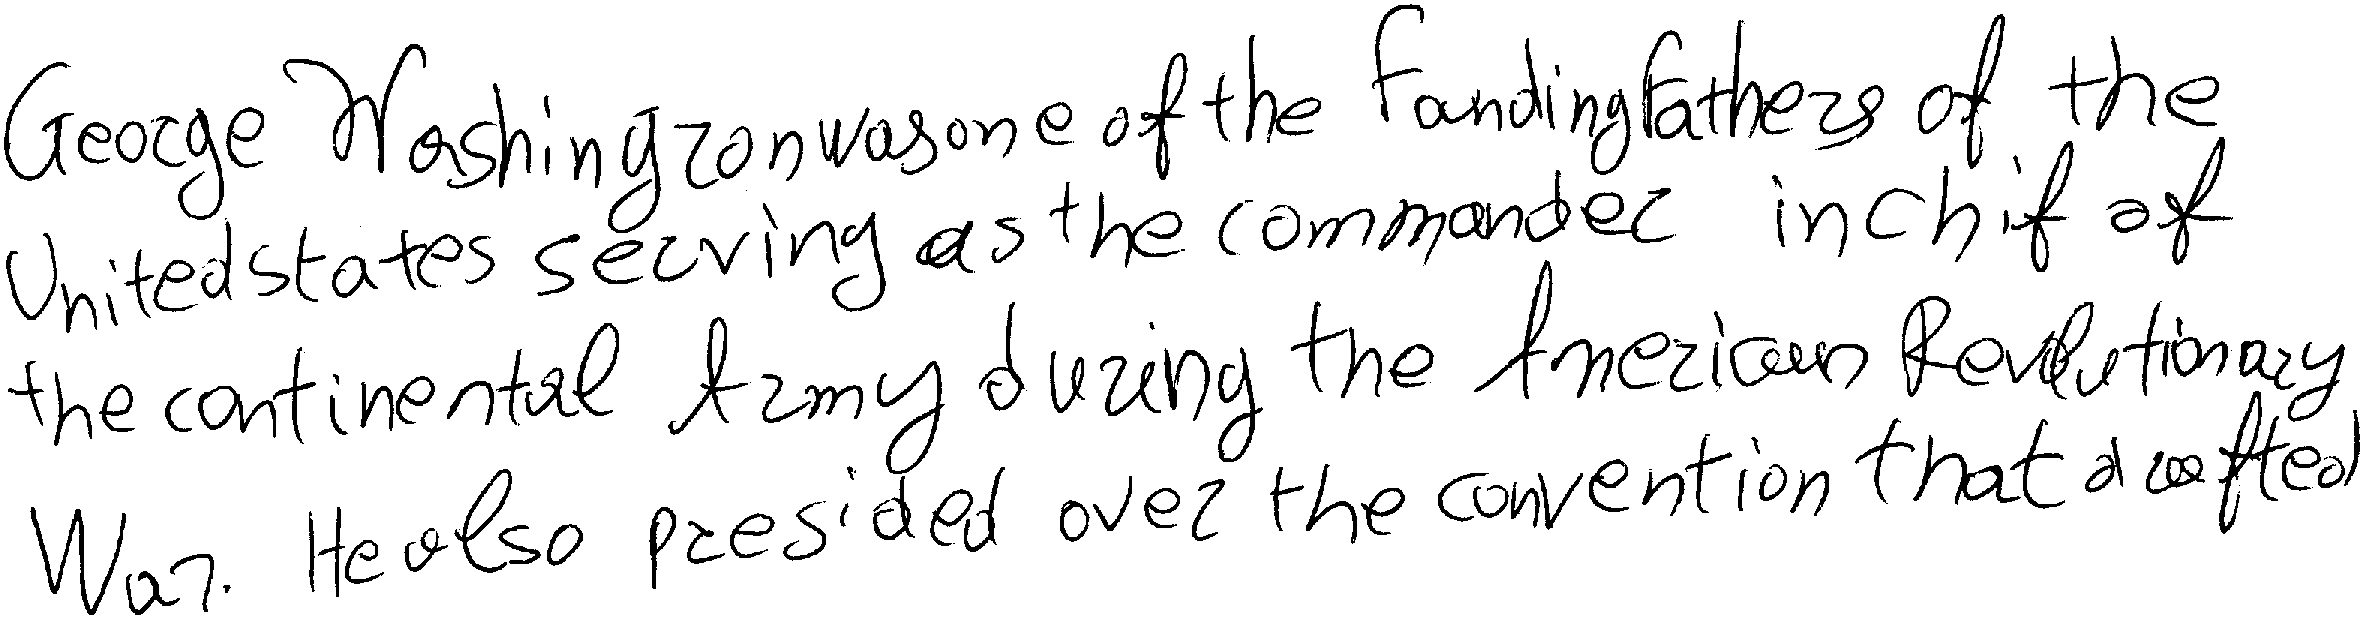 George Washington was one of the Fonding Fathers of the
United states serving as the commander in chif of
the continental Army during the American Revolutionary
War. He also presided over the convention that drafted